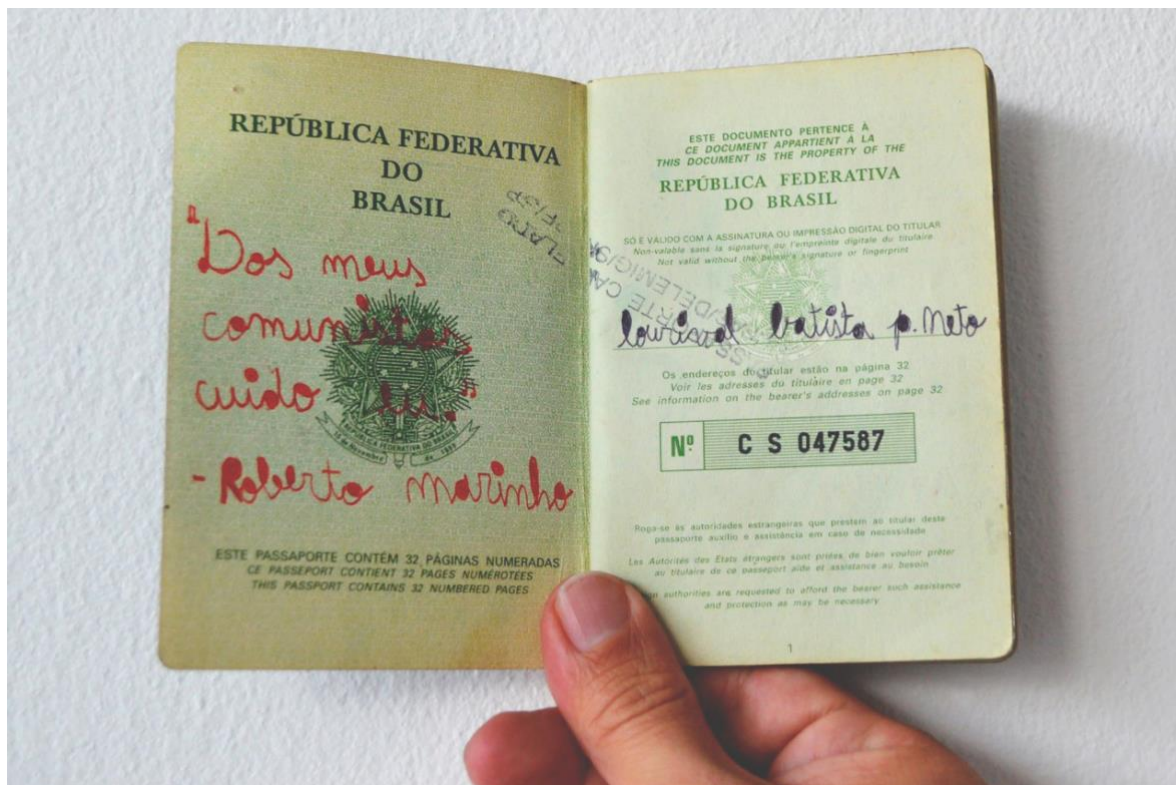 REPÚBLICA FEDERATIVA
DO
BRASIL
"Dos meus
comunistas
cuido eu."
- Roberto marinho
ESTE PASSAPORTE CONTÉM 32 PÁGINAS NUMERADAS
CE PASSEPORT CONTIENT 32 PAGES NUMÉROTÉES
THIS PASSPORT CONTAINS 32 NUMBERED PAGES
ESTE DOCUMENTO PERTENCE À
CE DOCUMENT APPARTIENT À LA
THIS DOCUMENT IS THE PROPERTY OF THE
REPÚBLICA FEDERATIVA
DO BRASIL
SÓ É VÁLIDO COM A ASSINATURA OU IMPRESSÃO DIGITAL DO TITULAR
Non-valable sans la signature ou l'empreinte digitale du titulaire
Not valid without the bearer's signature or fingerprint
lourival batista p. Neto
Os endereços do titular estão na página 32
Voir les adresses du titulaire en page 32
See information on the bearer's addresses on page 32
Nº C S 047587
Roga-se às autoridades estrangeiras que prestem ao titular deste
passaporte auxílio e assistência em caso de necessidade
Les Autorités des Etats étrangers sont priées de bien vouloir prêter
au titulaire de ce passeport aide et assistance au besoin
authorities are requested to afford the bearer such assistance
and protection as may be necessary
1